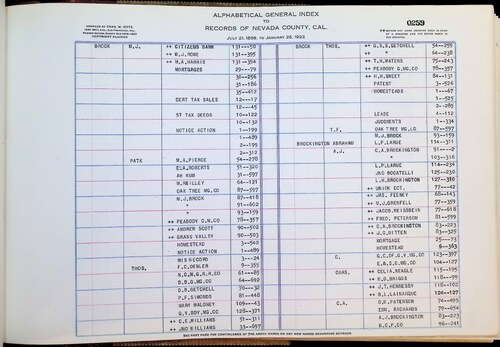 ALPHABETICAL GENERAL INDEX
TO
RECORDS OF NEVADA COUNTY, CAL.
JULY 21, 1856, TO JANUARY 26, 1922
0259
COPYRIGHT PLAINTIFF
BROCK M,J. ++ CITIZENS BANK 131---50
++ W,J,ROWE 131---395
++ M,A,HARRIS 131---394
MORTGAGES 29---79
30---256
31---186
35---412
CERT TAX SALES 12---17
12---45
ST TAX DEEDS 10---122
10---132
NOTICE ACTION 1---199
1---489
2---199
2---312
PATK M,A,PIERCE 54---278
ELA,ROBERTS 51---320
AH KUM 31---597
M,REILLEY 64---121
OAK TREE MG,CO 87---597
M,J,BROCK 87---418
" 91---602
" 93---159
++ PEABODY G,M,CO 78---357
++ ANDREW SCOTT 90---502
++ GRASS VALLEY 90---503
HOMESTEAD 3---502
NOTICE ACTION 1---489
MIS RECORD 3---24
THOS. F,C,DENLER 9---355
N,G,N,G,R,R,CO 61---85
D,B,G,MG,CO 64---692
G,B,GETCHELL 70---32
P,F,SIMONDS 81---448
MARY MALONEY 109---43
G,V,BOY,MG,CO 128---371
++ C,E,WILLIAMS 51---311
++ JNO WILLIAMS 33---657
BROCK THOS. ++ G,S,B,GETCHELL 54---259
++ " 64---238
++ T,H,WATERS 75---243
++ PEABODY G,MG,CO 78---357
++ H,H,SWEET 84---131
PATENT 3---526
HOMESTEADS 1---67
1---525
2---285
LEASE 4---112
JUDGMENTS 1---334
T.F. OAK TREE MG,CO 87---597
M,J,BROCK 93---159
BROCKINGTON ABRAHAM L,P,LARUE 114---311
A.J. C,A,BROCKINGTON 11---2
" 103---318
L,P,LARUE 114---234
JNO BOCATELLI 125---230
L,H,BROCKINGTON 127---380
++ UNION ECT. 77---42
++ JAS, FEENEY 68---143
++ W,J,GRENFELL 77---359
++ JACOB,WEISSBEIN 77---618
++ FRED, PETERSON 81---599
++ C,A,BROCKINGTON 83---223
++ J,G,RITTER 83---325
MORTGAGE 25---73
HOMESTEAD 6---363
C. G,C,OF,G,V,MG,CO 123---397
E,&,D,G,MG,CO 104---127
CHAS. ++ CELIA,NEAGLE 115---195
++ H,G,BRIGGS 118---99
++ J,T,HENNESSY 118---102
++ B,L,LAMARQUE 124---127
C.A. O,W,PATERSON 74---493
EDW, RICHARDS 79---654
A,J,BROCKINGTON 83---223
B,C,P,CO 96---241